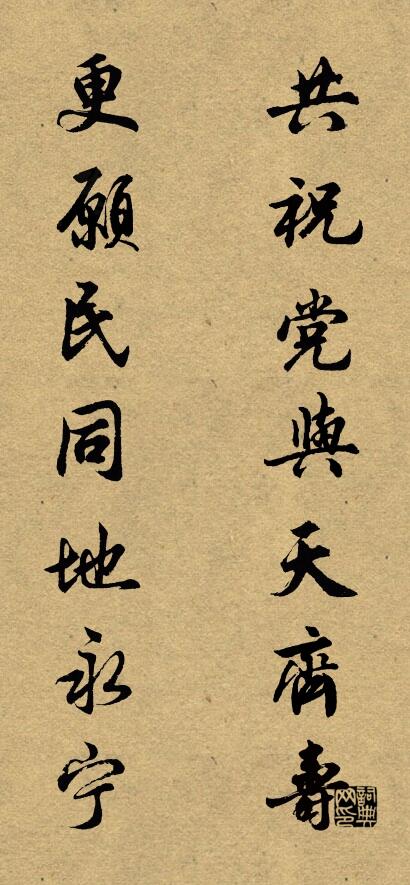 共祝党與天齊壽
更願民同地永宁
詞典
网印